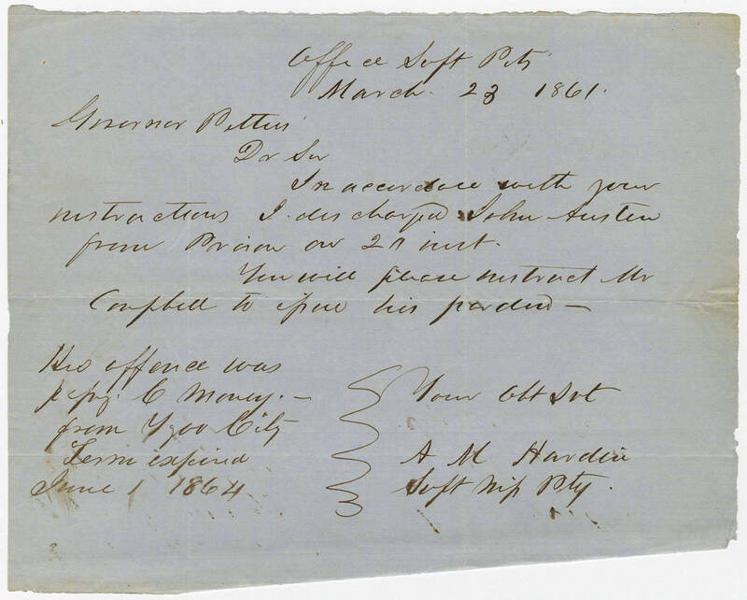 Office Supt Pty
March. 23 1861.
Governor Pettus
Dr Sir
In accordance with your
instructions I discharged John Austin
from Prison on inst.
You will please instruct Mr
Campbell to issue his pardon—
His offence was
passg. C Money.—
from Yzoo City
Term expired
June 1 1864
Your Obt Svt
A M Hardin
Supt Mip Pty.